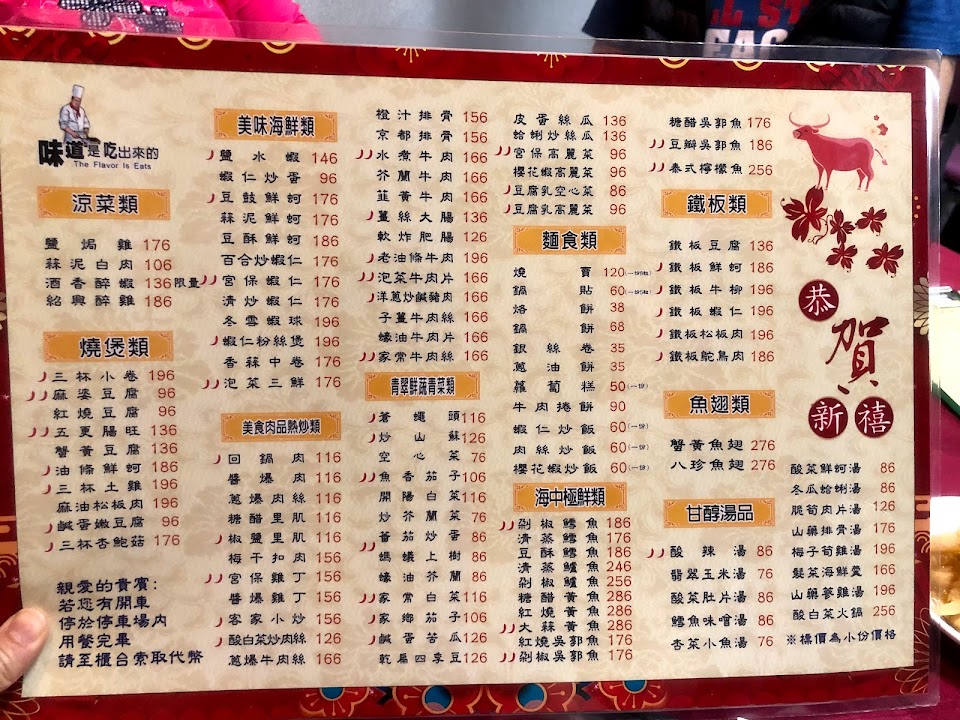 味道是吃出來的
The Flavor Is Eats
涼菜類
鹽焗雞 176
蒜泥白肉 106
酒香醉蝦 136 限量
紹興醉雞 186
燒煲類
三杯小卷 196
麻婆豆腐 96
紅燒豆腐 96
五更腸旺 136
蟹黃豆腐 136
油條鮮蚵 186
三杯土雞 196
麻油松板肉 196
鹹蛋嫩豆腐 96
三杯杏鮑菇 176
親愛的貴賓:
若您有開車
停於停車場內
用餐完畢
請至櫃台索取代幣
美味海鮮類
鹽水蝦 146
蝦仁炒蛋 96
豆鼓鮮蚵 176
蒜泥鮮蚵 176
豆酥鮮蚵 186
百合炒蝦仁 176
宮保蝦仁 176
清炒蝦仁 176
冬雪蝦球 196
蝦仁粉絲煲 196
香蒜中卷 176
泡菜三鮮 176
美食肉品熱炒類
回鍋肉 116
醬爆肉 116
蔥爆肉絲 116
糖醋里肌 116
椒鹽里肌 116
梅干扣肉 156
宮保雞丁 156
醬爆雞丁 156
客家小炒 156
酸白菜炒肉絲 126
蔥爆牛肉絲 166
橙汁排骨 156
京都排骨 156
水煮牛肉 166
芥蘭牛肉 166
韮黃牛肉 166
薑絲大腸 136
軟炸肥腸 126
老油條牛肉 196
泡菜牛肉片 166
洋蔥炒鹹豬肉 166
子薑牛肉絲 166
蠔油牛肉片 166
家常牛肉絲 166
青翠鮮蔬青菜類
蒼蠅頭 116
炒山蘇 126
空心菜 76
魚香茄子 106
開陽白菜 116
炒芥蘭菜 76
蕃茄炒蛋 86
螞蟻上樹 86
蠔油芥蘭 86
家常白菜 116
家鄉茄子 116
鹹蛋苦瓜 126
乾扁四季豆 126
皮蛋絲瓜 136
蛤蜊炒絲瓜 136
宮保高麗菜 96
櫻花蝦高麗菜 96
豆腐乳空心菜 86
豆腐乳高麗菜 96
麵食類
燒賣 120
鍋貼 60
烙餅 38
鍋餅 68
銀絲卷 35
蔥油餅 35
蘿蔔糕 50 (一份)
牛肉捲餅 90
蝦仁炒飯 60 (一份)
肉絲炒飯 60 (一份)
櫻花蝦炒飯 60 (一份)
海中極鮮類
剁椒鱈魚 186
清蒸鱈魚 176
豆酥鱈魚 186
清蒸鱸魚 246
剁椒鱸魚 256
糖醋黃魚 286
紅燒黃魚 286
大蒜黃魚 286
紅燒吳郭魚 176
剁椒吳郭魚 176
糖醋吳郭魚 176
豆瓣吳郭魚 186
泰式檸檬魚 256
鐵板類
鐵板豆腐 136
鐵板鮮蚵 186
鐵板牛柳 196
鐵板蝦仁 196
鐵板松板肉 196
鐵板鴕鳥肉 186
魚翅類
蟹黃魚翅 276
八珍魚翅 276
甘醇湯品
酸辣湯 86
翡翠玉米湯 76
酸菜肚片湯 86
鱈魚味噌湯 86
杏菜小魚湯 76
恭
賀
新禧
酸菜鮮蚵湯 86
冬瓜蛤蜊湯 86
脆筍肉片湯 126
山藥排骨湯 176
梅子筍雞湯 196
髮菜海鮮羹 166
山藥蔘雞湯 196
酸白菜火鍋 256
※標價為小份價格